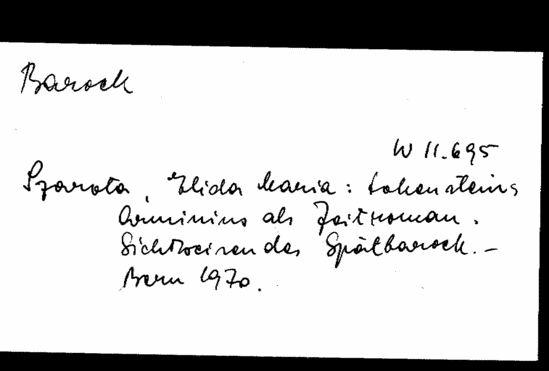 Barock
W 11.695
Szarota, Elida Maria: Lohensteins
Arminius als Zeitroman.
Sichtweisen des Spätbarock. –
Bern 1970.